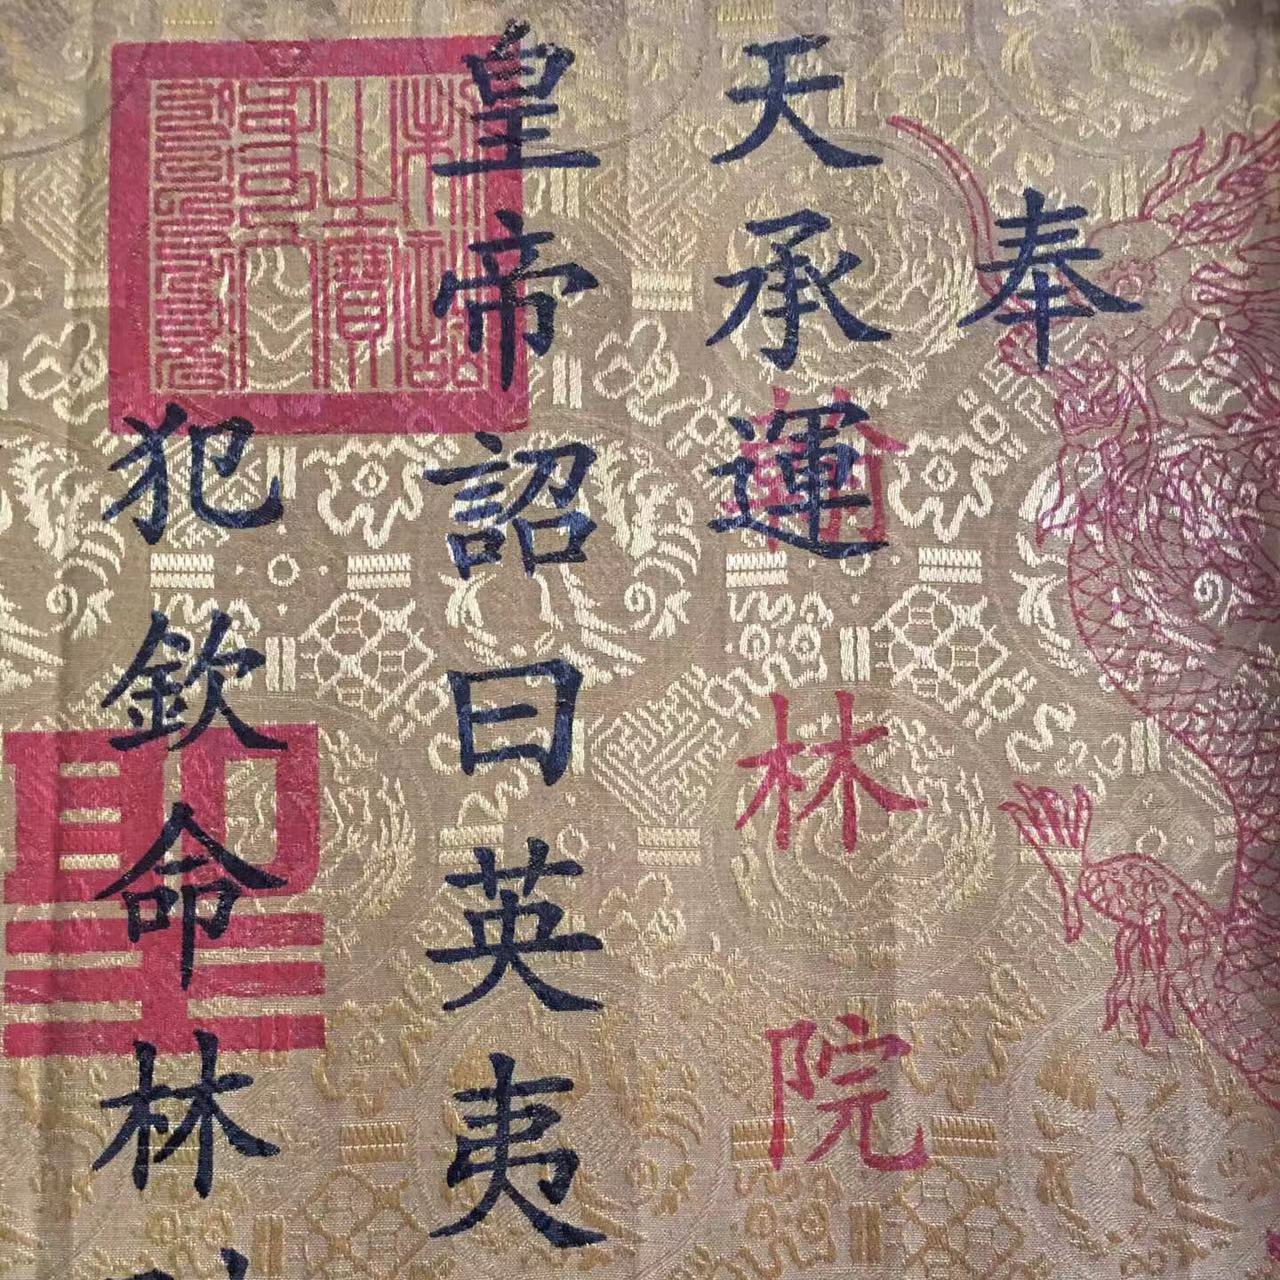 奉
天承運
皇帝詔曰英夷
犯欽命林
翰林院
聖